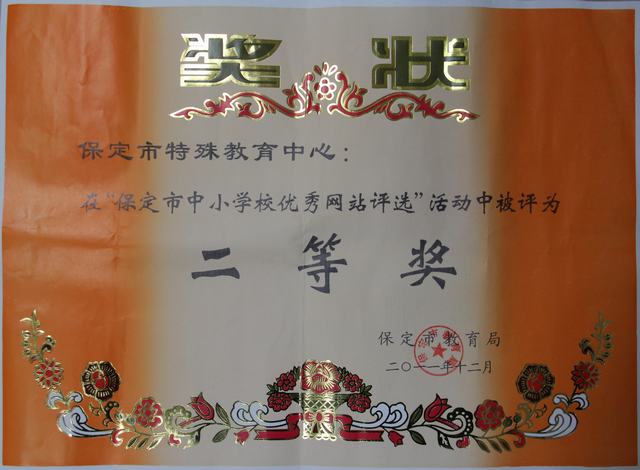 奖状
保定市特殊教育中心：
在“保定市中小学校优秀网站评选”活动中被评为
二等奖
保定市教育局
二〇一一年十二月